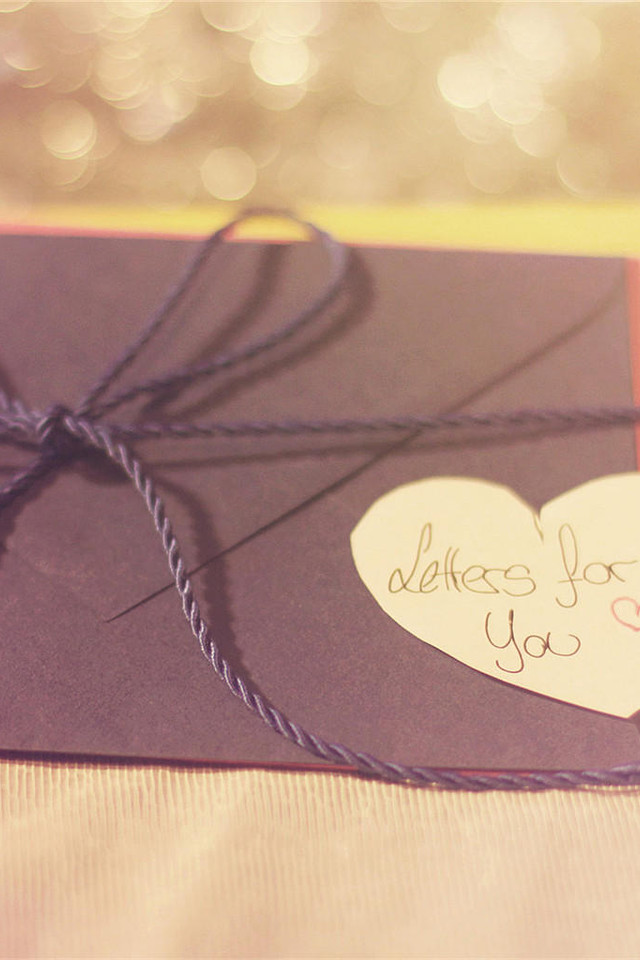 Letters for
You